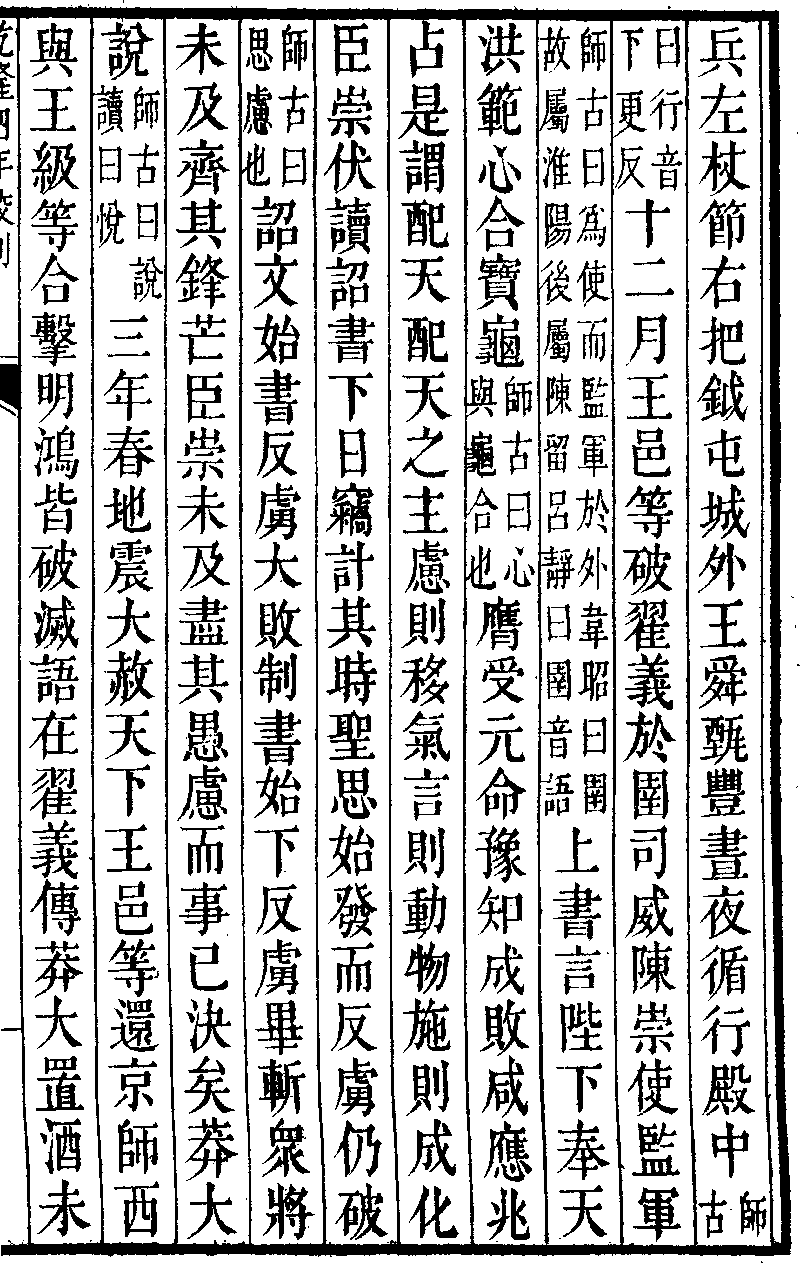 兵左杖節右把鉞屯城外王舜甄豐晝夜循行殿中師古
曰行音下更反十二月王邑等破翟義於圉司威陳崇使監軍
師古曰爲使而監軍於外韋昭曰圉故屬淮陽後屬陳留呂靜曰圉音語上書言陛下奉天
洪範心合寶龜師古曰心與龜合也膺受元命豫知成敗咸應兆
占是謂配天配天之主慮則移氣言則動物施則成化
臣崇伏讀詔書下日竊計其時聖思始發而反虜仍破
師古曰思慮也詔文始書反虜大敗制書始下反虜畢斬衆將
未及齊其鋒芒臣崇未及盡其愚慮而事已決矣莽大
說師古曰說讀曰悅三年春地震大赦天下王邑等還京師西
與王級等合擊明鴻皆破滅語在翟義傳莽大置酒未